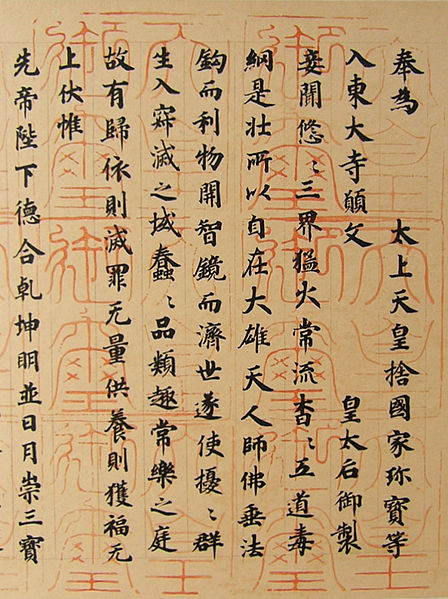 奉為　太上天皇捨國家珎寶等
入東大寺願文　皇太后御製
妾聞悠〻三界猛火常流杳〻五道毒
網是壮所以自在大雄天人師佛垂法
鈎而利物開智鏡而濟世遂使擾〻群
生入寂滅之域蠢〻品類趣常樂之庭
故有歸依則滅罪无量供養則獲福无
上伏惟
先帝陛下德合乾坤明並日月崇三寶